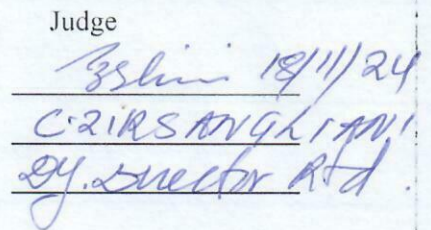 Judge
18/11/24
C. ZIRSANGLIANI
Dy. Director Rtd.